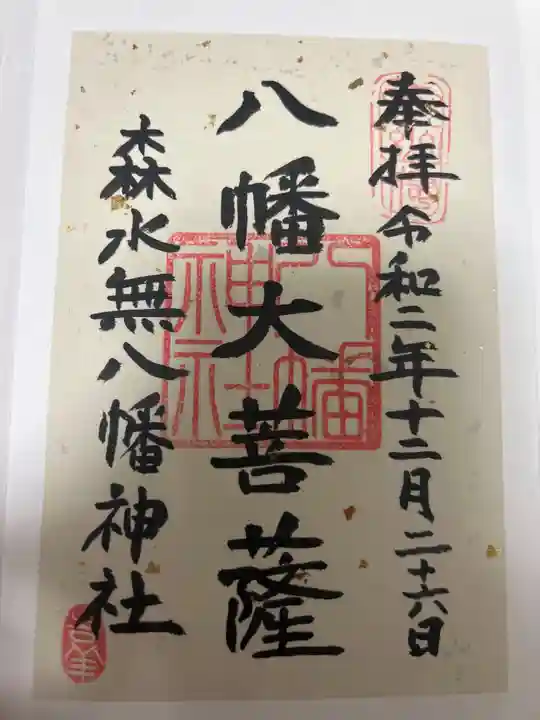 奉拝令和二年十二月二十六日
八幡大菩薩
森水無八幡神社
八幡神社